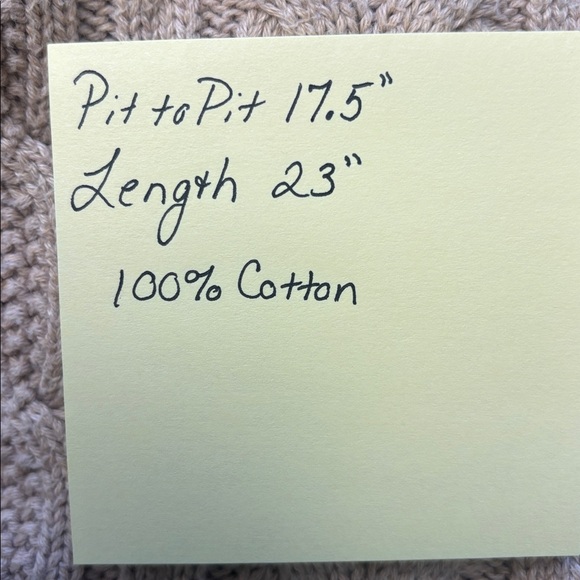 Pit to Pit 17.5"
Length 23"
100% Cotton